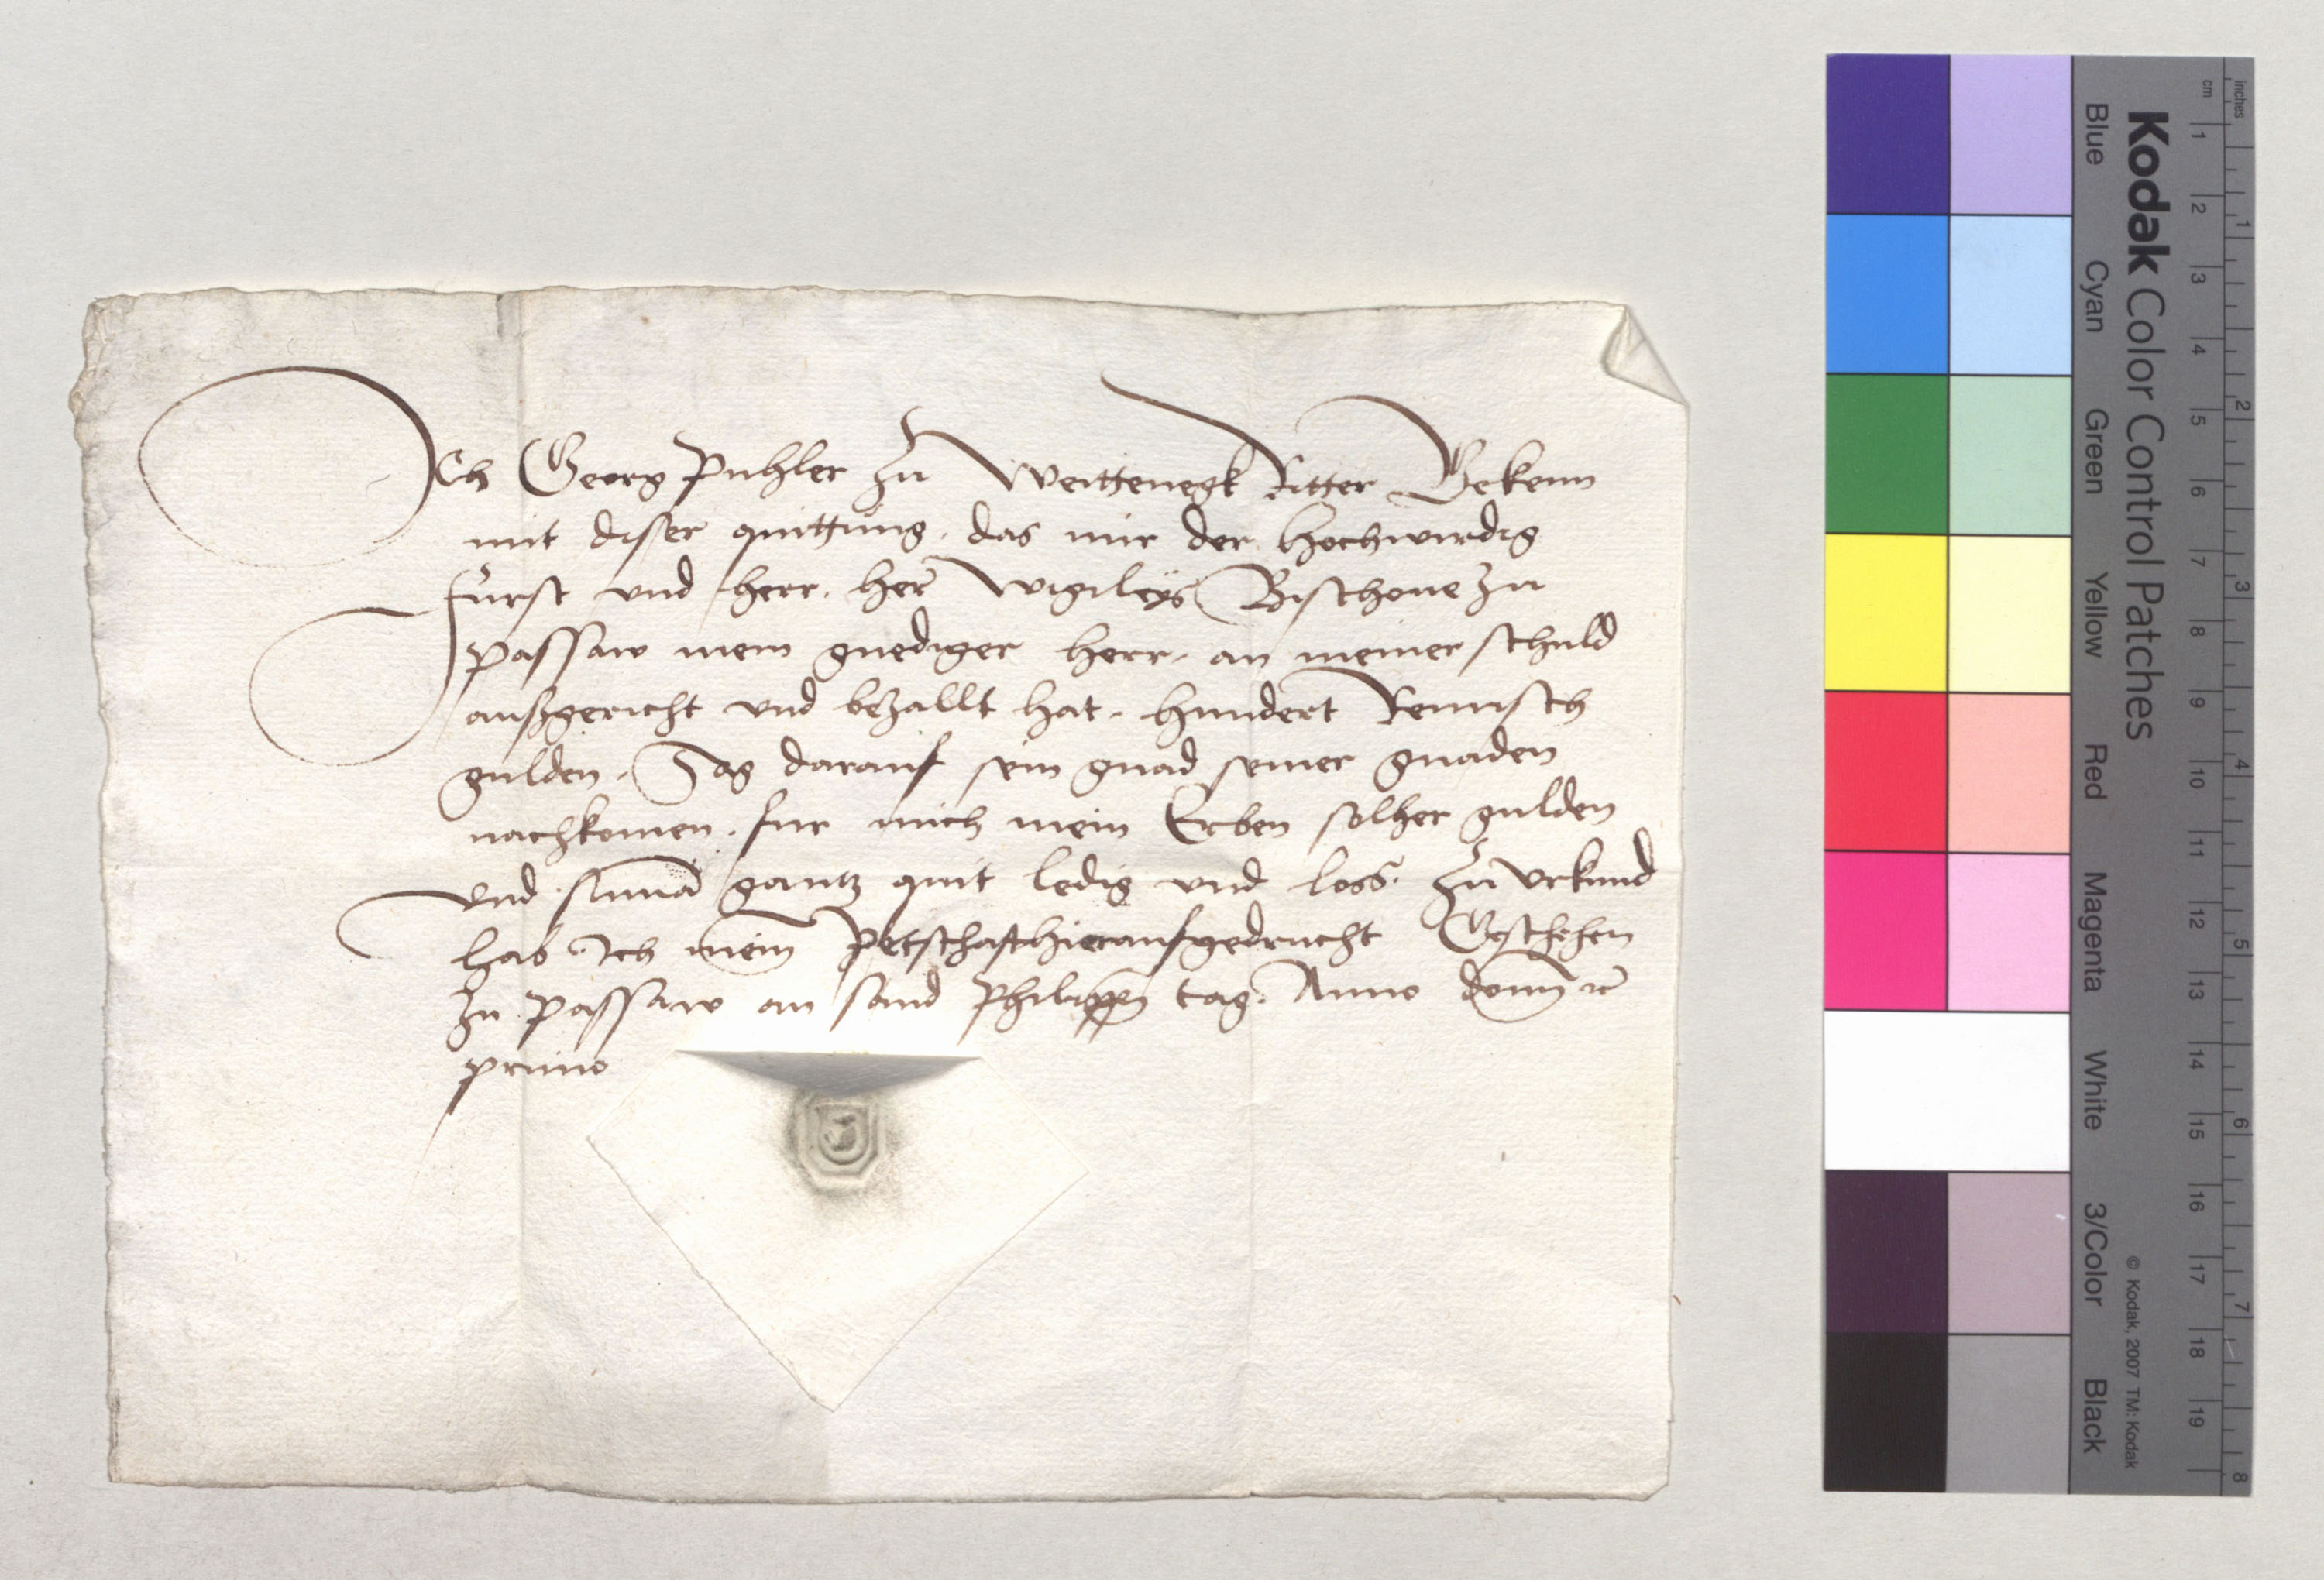 Ich Georg Puhler zu Weittenegk Ritter Bekenn
mit diser quittung. das mir der hochwirdig
fürst vnd herr. her Wigileys Bischoue zu
passaw mein gnediger herr. an meiner schuld
außgericht vnd bezallt hat. hundert Reinisch
gulden. Sag darauf sein gnad seiner gnaden
nachkomen. fur mich mein Erben solher gulden
vnd suma gantz quit ledig vnd loss. zu vrkund
hab Ich mein Petschaft hierauf gedrucht Geschehen
zu Passaw an sand Philippen tag. Anno domi ıc
primo
Kodak Color Control Patches
Blue Cyan Green Yellow Red Magenta White 3/Color Black
© Kodak, 2007 TM: Kodak
cm 1 2 3 4 5 6 7 8 9 10 11 12 13 14 15 16 17 18 19
inches 1 2 3 4 5 6 7 8